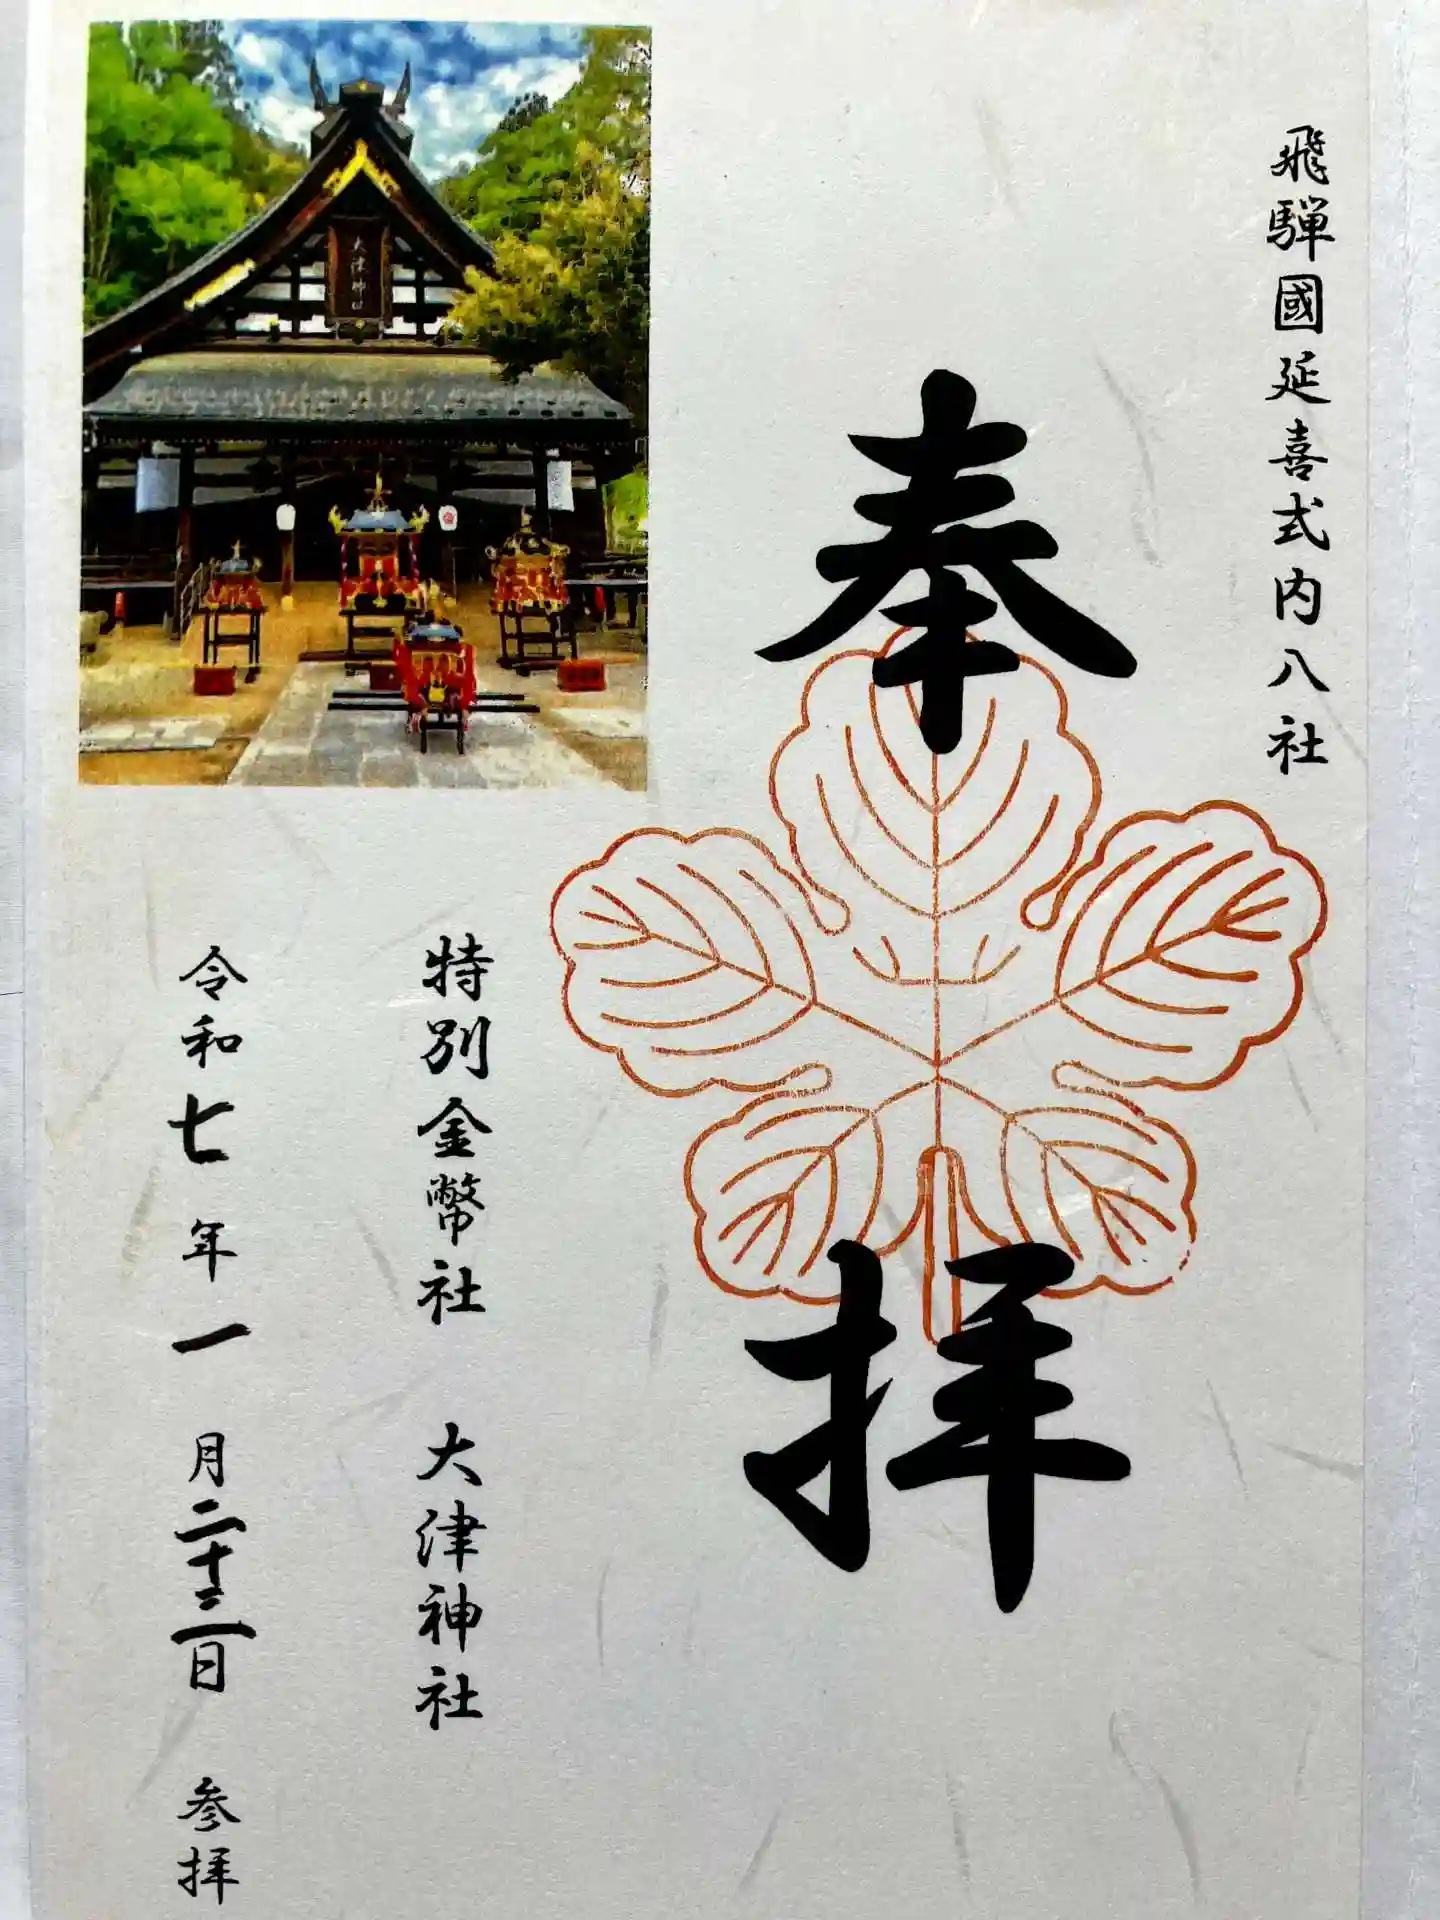 飛騨國延喜式内八社
奉拝
大津神社
特別金幣社 大津神社
令和七年一月二十三日 参拝